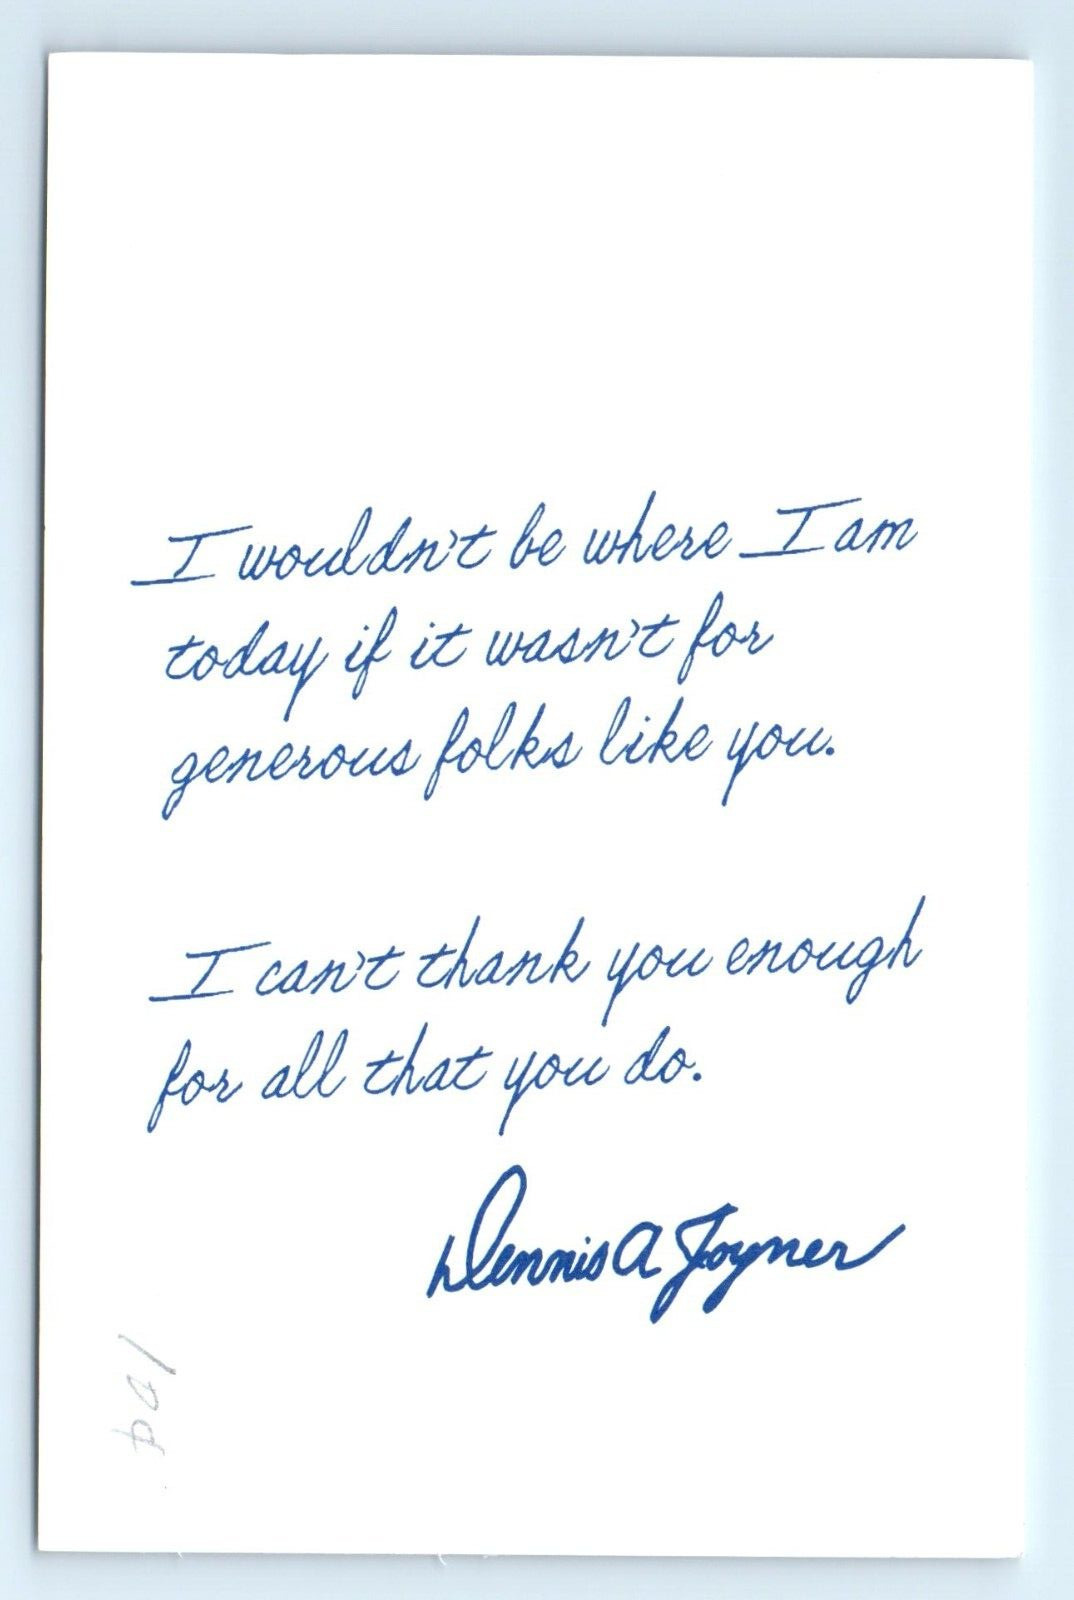 I wouldn't be where I am
today if it wasn't for
generous folks like you.
I can't thank you enough
for all that you do.
Dennis A Joyner